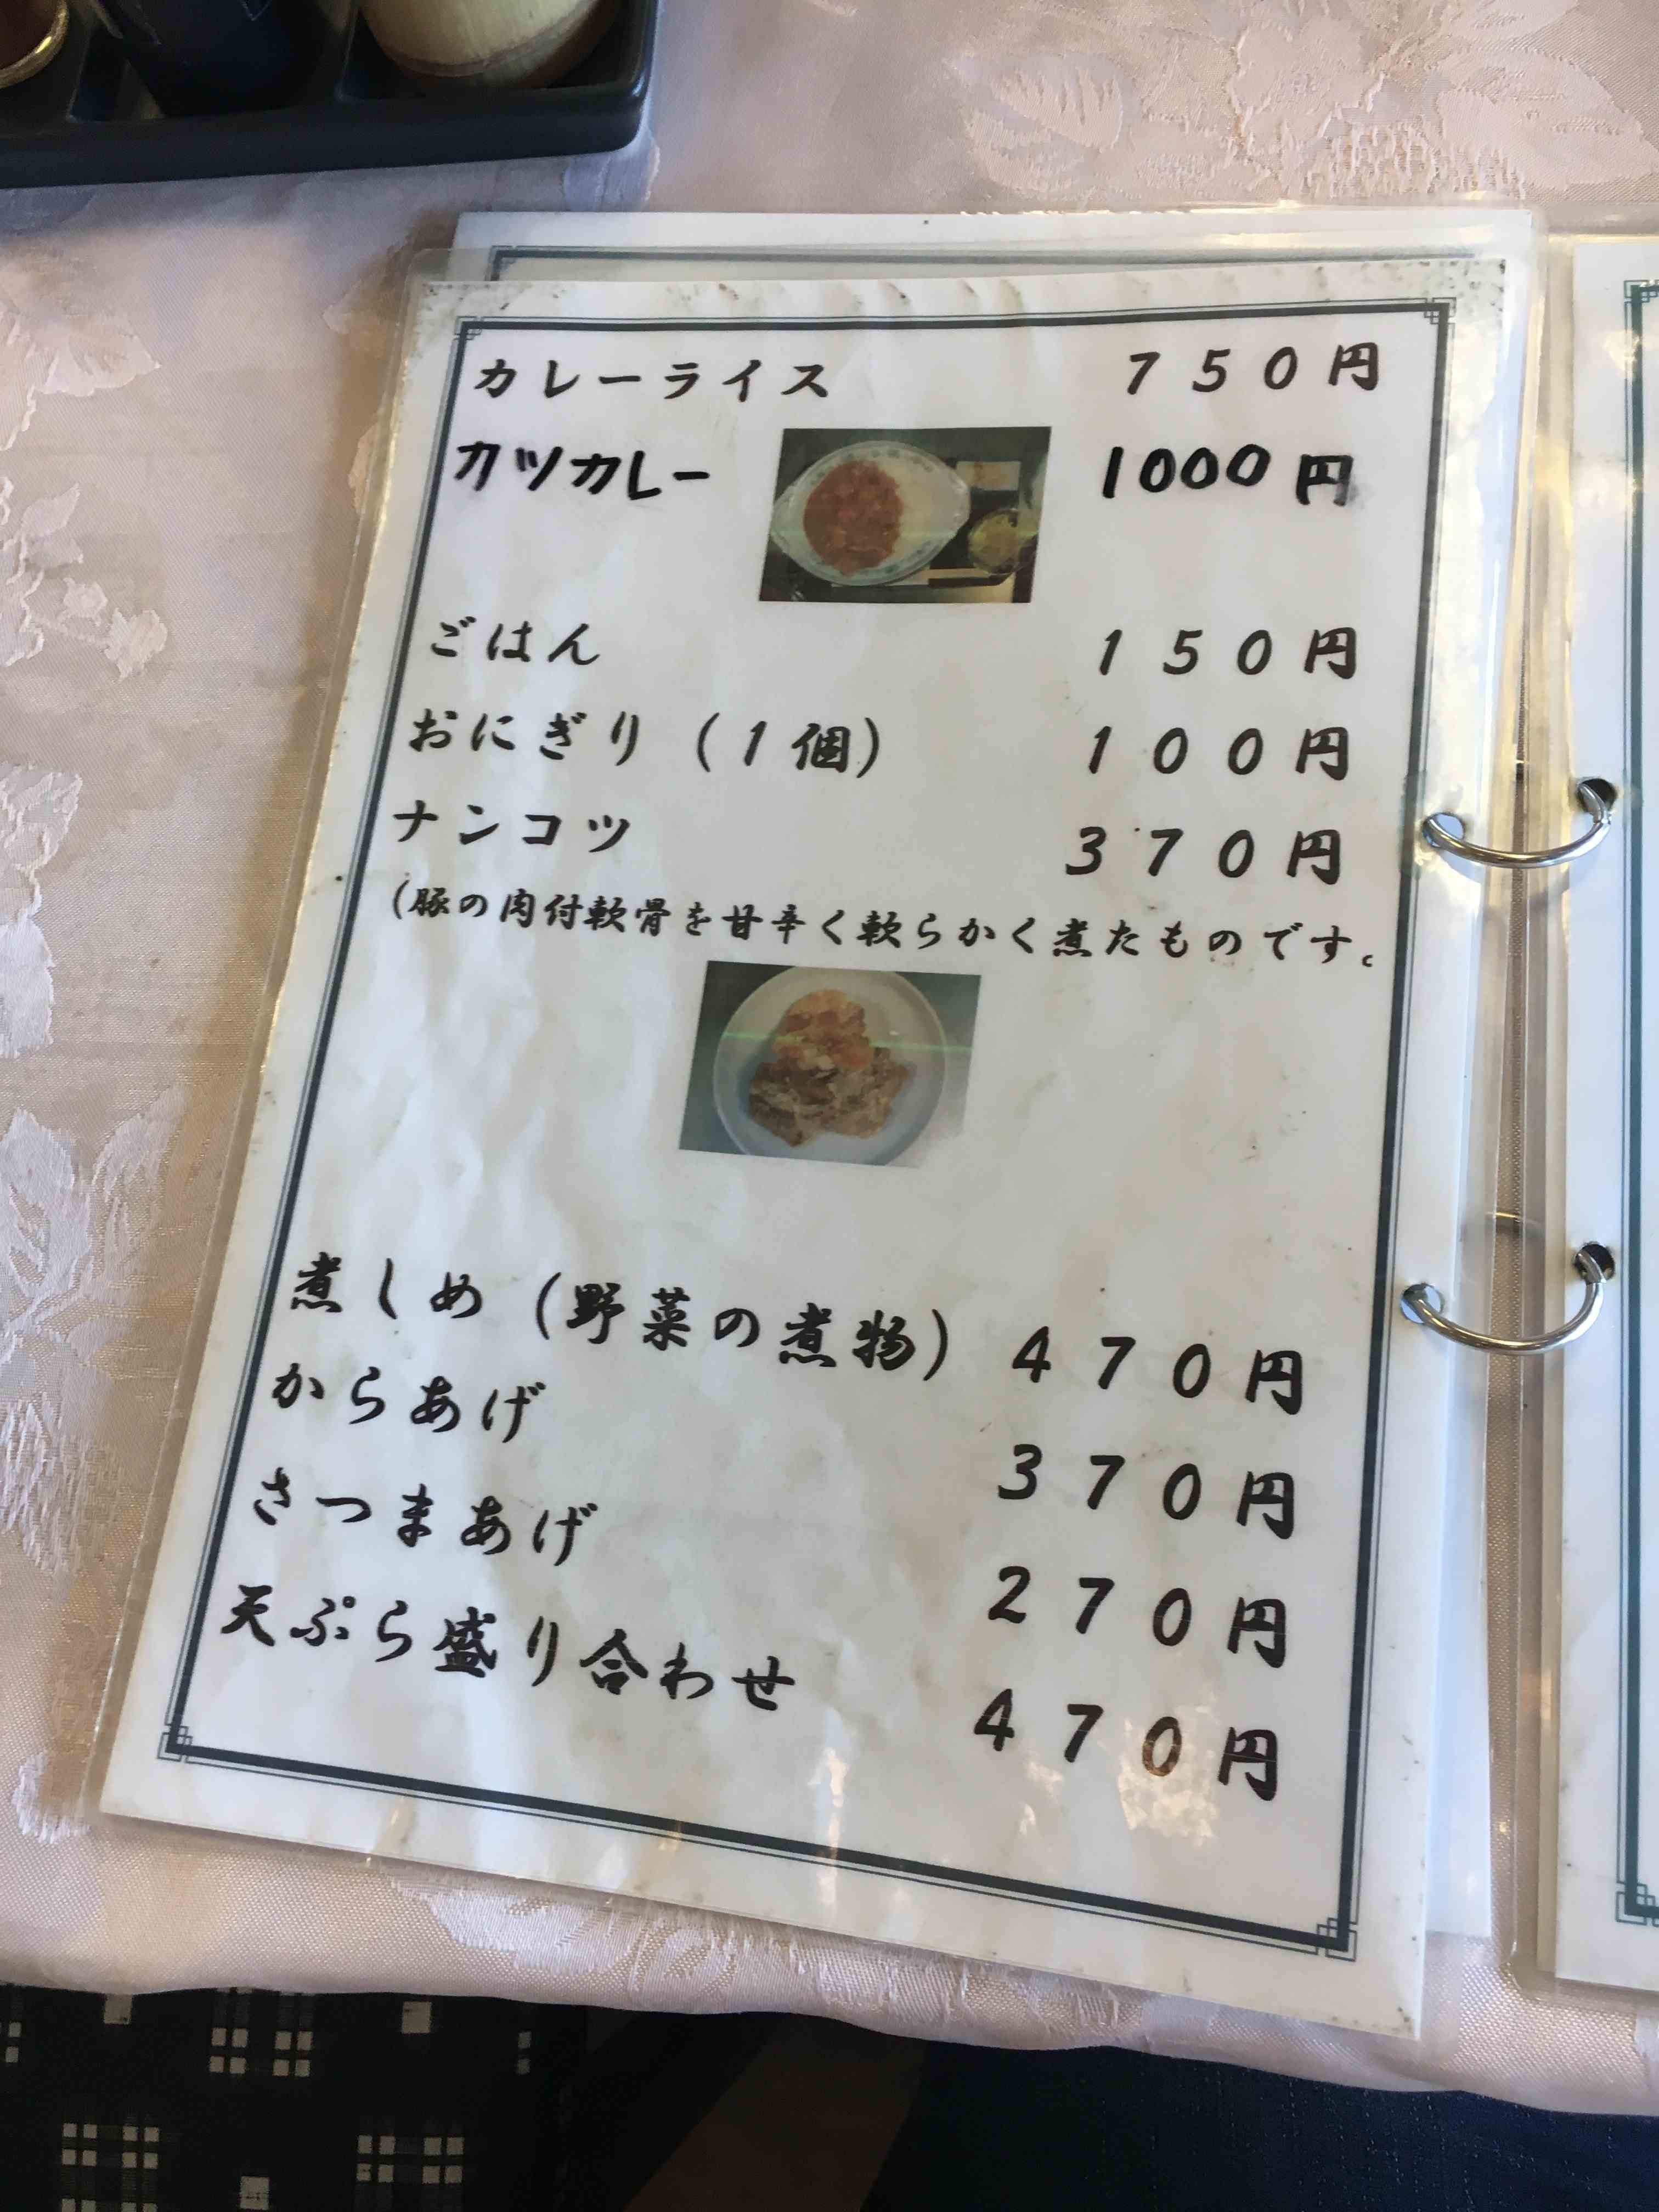 カレーライス ７５０円
カツカレー 1000円
ごはん １５０円
おにぎり（１個） １００円
ナンコツ ３７０円
（豚の肉付軟骨を甘辛く軟らかく煮たものです。
煮しめ（野菜の煮物） ４７０円
からあげ ３７０円
さつまあげ ２７０円
天ぷら盛り合わせ ４７０円